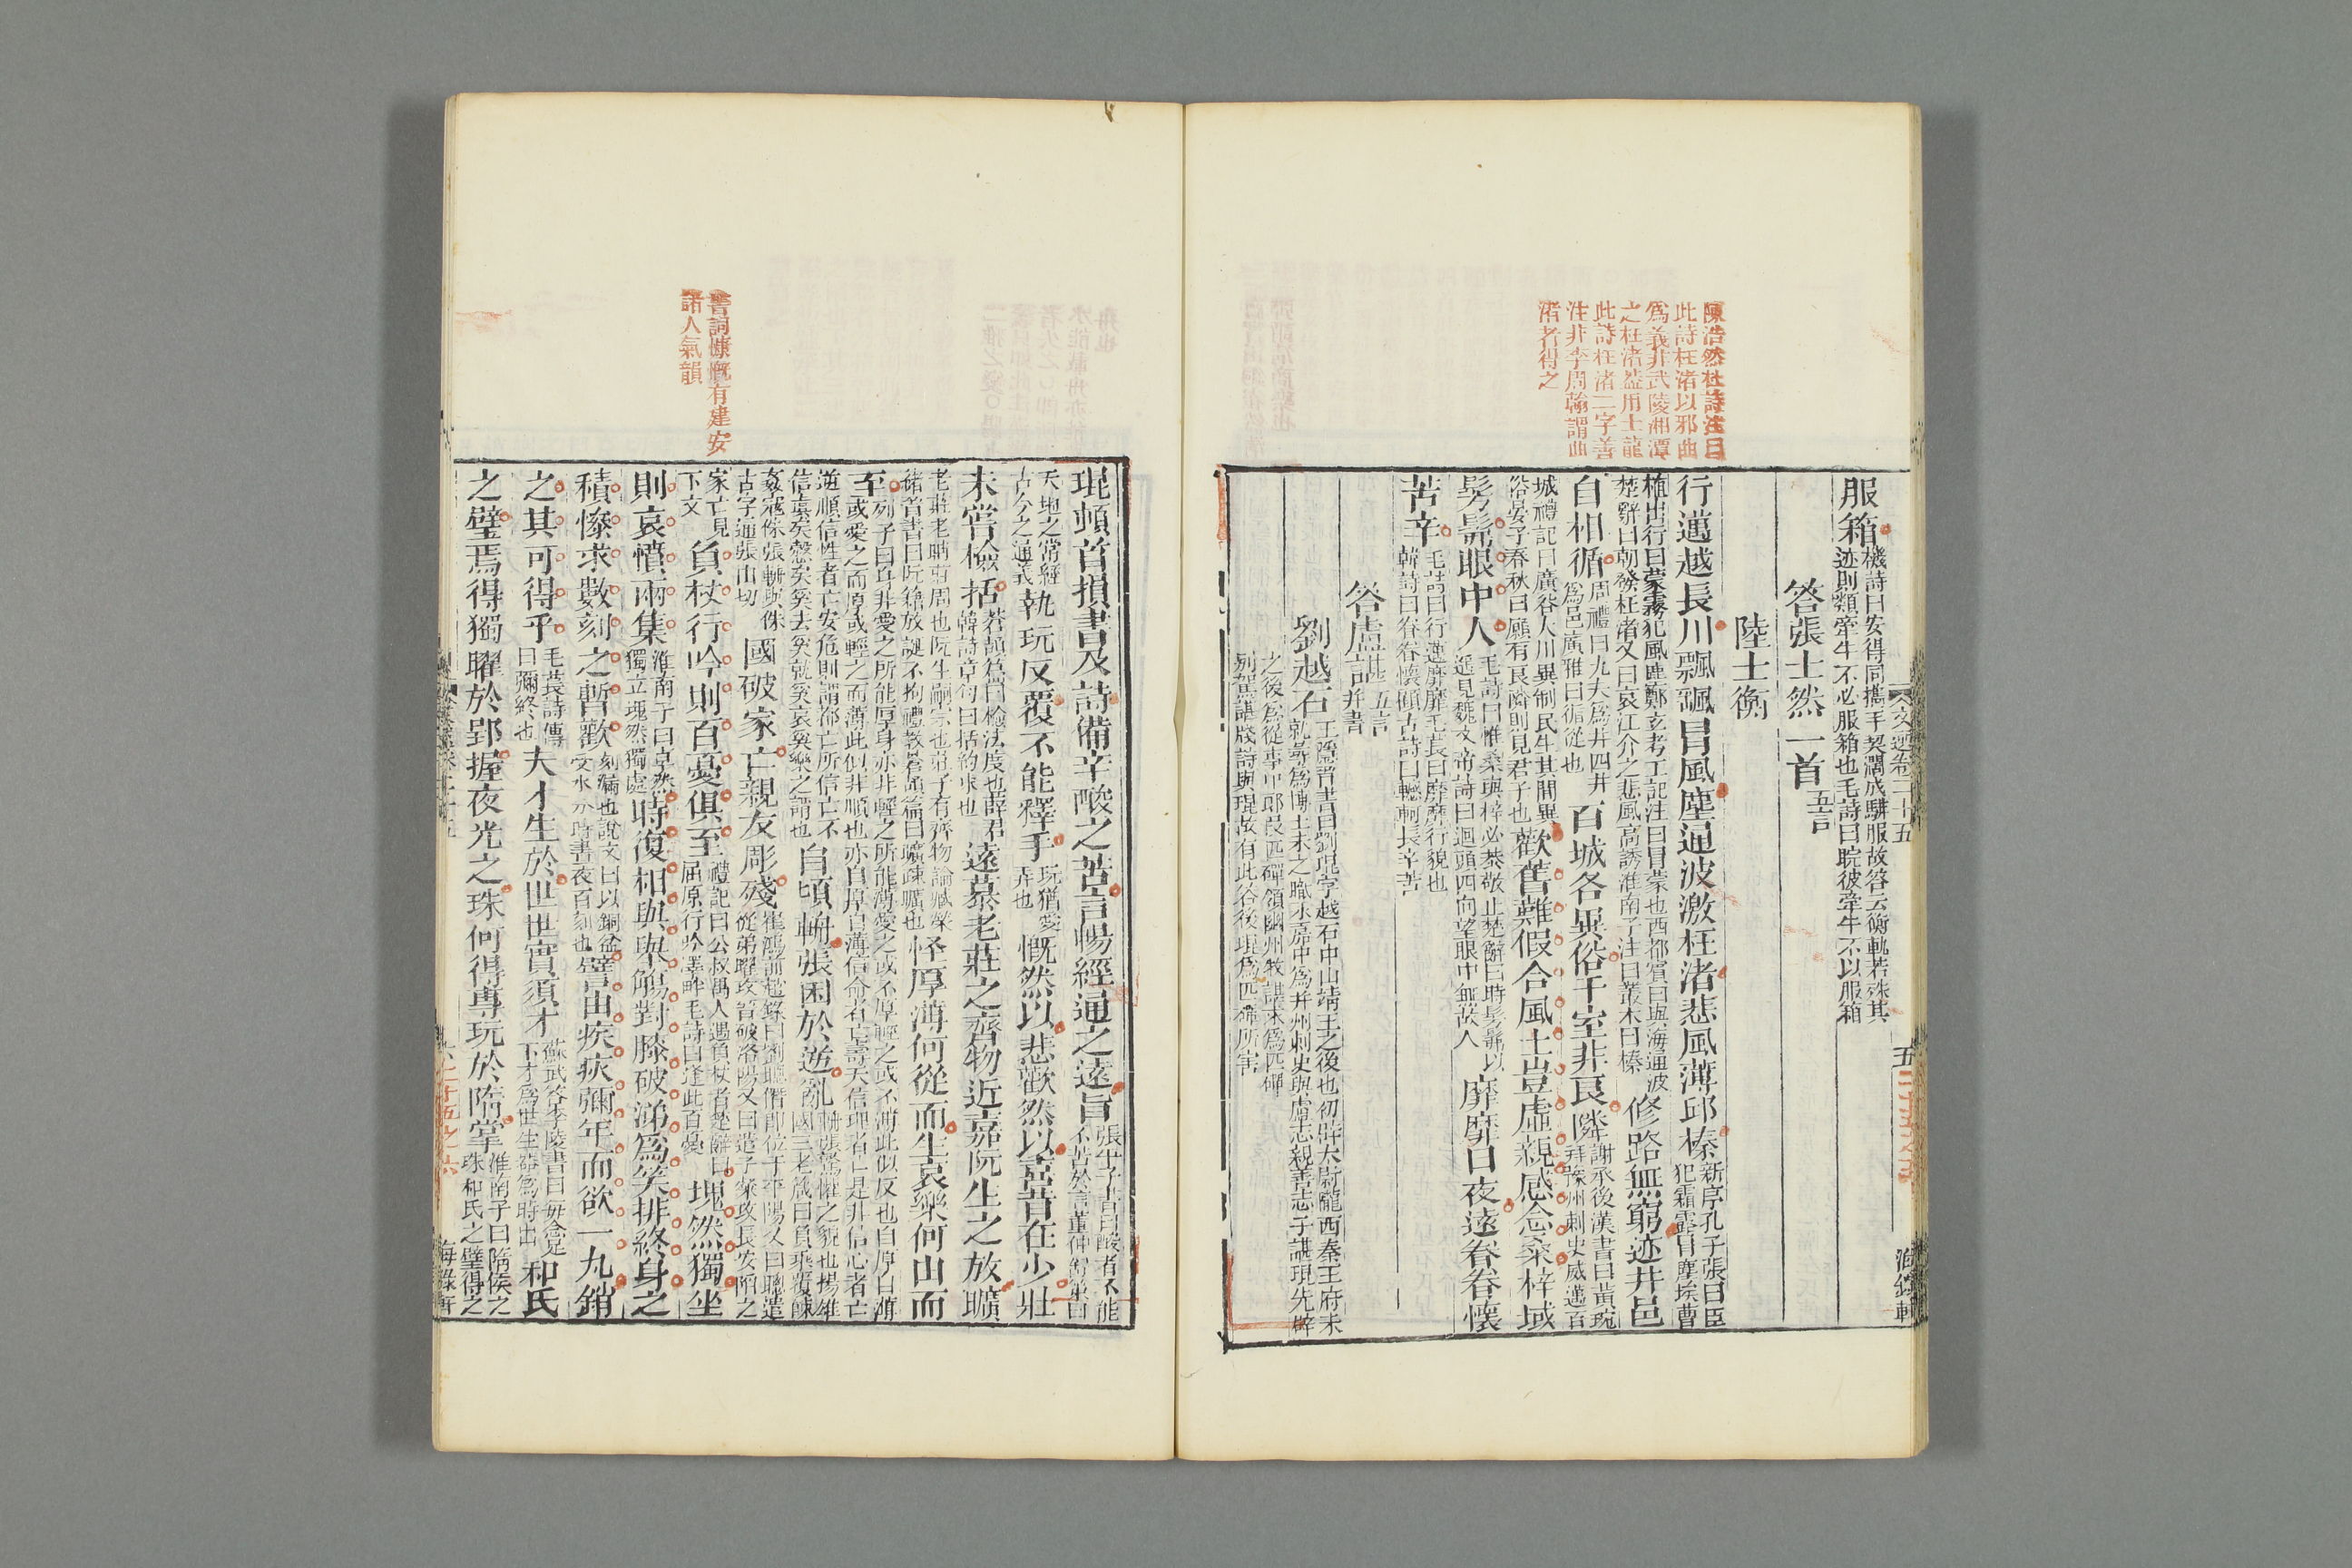 陳浩然杜詩注曰
此詩枉渚以邪曲
爲義非武陵湘潭
之枉渚葢用士龍
此詩枉渚二字善
注非李周翰謂曲
渚者得之
服箱機詩曰安得同攜手契闊成騑服故答云衡軌若殊其迹則類牽牛不必服箱也毛詩曰睆彼牽牛不以服箱
答張士然一首五言
陸士衡
行邁越長川飄颻冒風塵通波激枉渚悲風薄邱榛新序孔子張曰臣犯霜露冒塵埃曹
植出行曰蒙霧犯風塵鄭玄考工記注曰冒蒙也西都賓曰與海通波楚辭曰朝發枉渚又曰哀江介之悲風高誘淮南子注曰叢木曰榛修路無窮迹井邑
自相循周禮曰九夫爲井四井爲邑廣雅曰循從也百城各異俗千室非良隣謝承後漢書曰黃琬拜豫州刺史威邁百
城禮記曰廣谷大川異制民生其閒異俗晏子春秋曰願有良隣則見君子也歡舊難假合風土豈虛親感念桑梓域
髣髴眼中人毛詩曰惟桑與梓必恭敬止楚辭曰時髣髴以遥見魏文帝詩曰迴頭四向望眼中無故人靡靡日夜遠眷眷懷
苦辛毛詩曰行邁靡靡毛萇曰靡靡行貌也韓詩曰眷眷懷顧古詩曰轗軻長辛苦
答盧諶五言并書
劉越石王隱晉書曰劉琨字越石中山靖王之後也初辟太尉隴西秦王府未就尋爲博士未之職永嘉中爲并州刺史與盧志親善志子諶琨先辟
之後爲從事中郎段匹磾領幽州牧諶求爲匹磾别駕諶牋詩與琨故有此答後琨爲匹磾所害
文選卷二十五
五
二十五之五
海錄軒
書詞慷慨有建安
諸人氣韻
琨頓首損書及詩備辛酸之苦言暢經通之遠旨張平子書曰酸者不能不苦於言董仲舒策曰
天地之常經古今之通義執玩反覆不能釋手玩猶愛弄也慨然以悲歡然以喜昔在少壯
未嘗檢括蒼頡篇曰檢法度也薛君韓詩章句曰括約束也遠慕老莊之齊物近嘉阮生之放曠
老莊老聃莊周也阮生嗣宗也莊子有齊物論臧榮緒晉書曰阮籍放誕不拘禮敎蒼頡篇曰曠疎曠也怪厚薄何從而生哀樂何由而
至列子曰身非愛之所能厚身亦非輕之所能薄愛之或不厚輕之或不薄此似反也自厚自薄或愛之而厚或輕之而薄此似非順也亦自厚自薄信命者亡壽夭信理者亡是非信心者亡
逆順信性者亡安危則謂都亡所信亡不信眞矣慤矣奚去奚就奚哀奚樂之謂也自頃輈張困於逆亂輈張驚懼之貌也揚雄國三老箴曰負乘覆餗
姦寇侏張輈與侏古字通張由切國破家亡親友彫殘崔鴻前趙錄曰劉聰僭卽位于平陽又曰聰遣從弟曜攻晉破洛陽又曰遣子粲攻長安陷之
家亡見下文負杖行吟則百憂俱至禮記曰公叔禺人遇負杖者楚辭曰屈原行吟澤畔毛詩曰逢此百憂塊然獨坐
則哀憤兩集淮南子曰卓然獨立塊然獨處時復相與舉觴對膝破涕爲笑排終身之
積慘求數刻之暫歡刻漏也說文曰以銅盆受水分時晝夜百刻也譬由疾疢彌年而欲一丸銷
之其可得乎毛萇詩傳曰彌終也夫才生於世世實須才蘇武答李陵書曰每念足下才爲世生器爲時出和氏
之璧焉得獨曜於郢握夜光之珠何得專玩於隋掌淮南子曰隋侯之珠和氏之璧得之
二十五之六
海錄軒